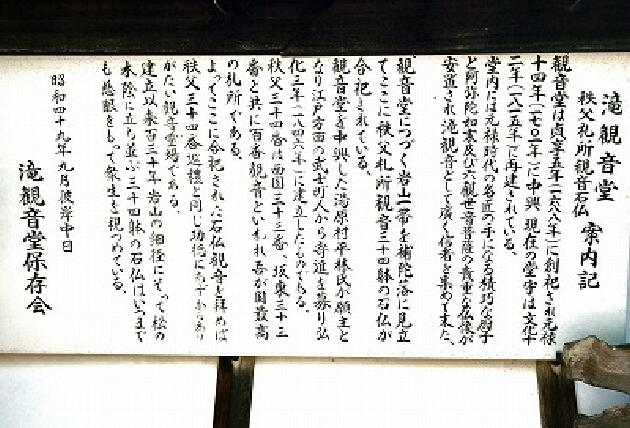 滝観音堂
秩父札所観音石仏 案内記
観音堂は貞享五年(一六八八年)に創祀され元禄
十四年(一七〇一年)に中興、現在の堂宇は文化十
二年(一八一五年)に再建されている。
堂内には元禄時代の名匠の手になる精巧な厨子
と阿弥陀如来及び六観世音菩薩の貴重な仏像が
安置され滝観音として広く信者を集めて来た、
観音堂につづく岩山一帯を補陀落に見立
てここに秩父札所観音三十四躰の石仏が
合祀されている。
観音堂を中興した湯原村平林氏が願主と
なり江戸方面の武士町人から寄進を募り弘
化三年(一八四六年)に建立したものである。
秩父三十四番は西国三十三番、坂東三十三
番と共に百番観音といわれ吾が国最高
の札所である。
よってここに合祀された石仏観音を拝めば
秩父三十四番巡礼と同じ功徳にあずかりあり
がたい観音霊場である。
建立以来百三十年岩山の細径にそって松の
木陰に立ち並ぶ三十四躰の石仏はいつまで
も慈眼をもって衆生を視つめている。
昭和四十九年九月彼岸中日
滝観音堂保存会